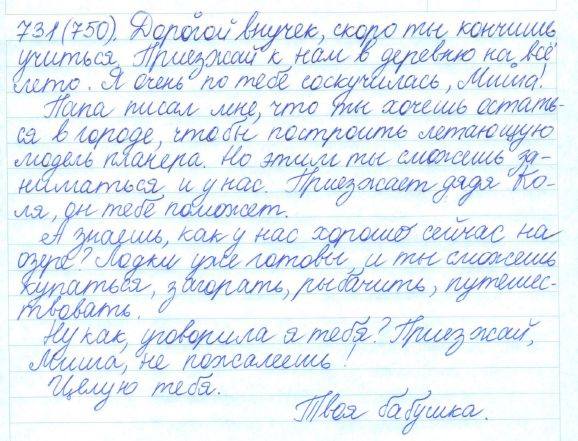 731(750). Дорогой внучек, скоро ты кончишь
учиться. Приезжай к нам в деревню на всё
лето. Я очень по тебе соскучилась, Миша!
Папа писал мне, что ты хочешь остать-
ся в городе, чтобы построить летающую
модель планера. Но этим ты сможешь за-
ниматься и у нас. Приезжает дядя Ко-
ля, он тебе поможет.
А знаешь, как у нас хорошо сейчас на
озере? Лодки уже готовы, и ты сможешь
купаться, загорать, рыбачить, путешес-
твовать.
Ну как, уговорила я тебя? Приезжай,
Миша, не пожалеешь!
Целую тебя.
Твоя бабушка.